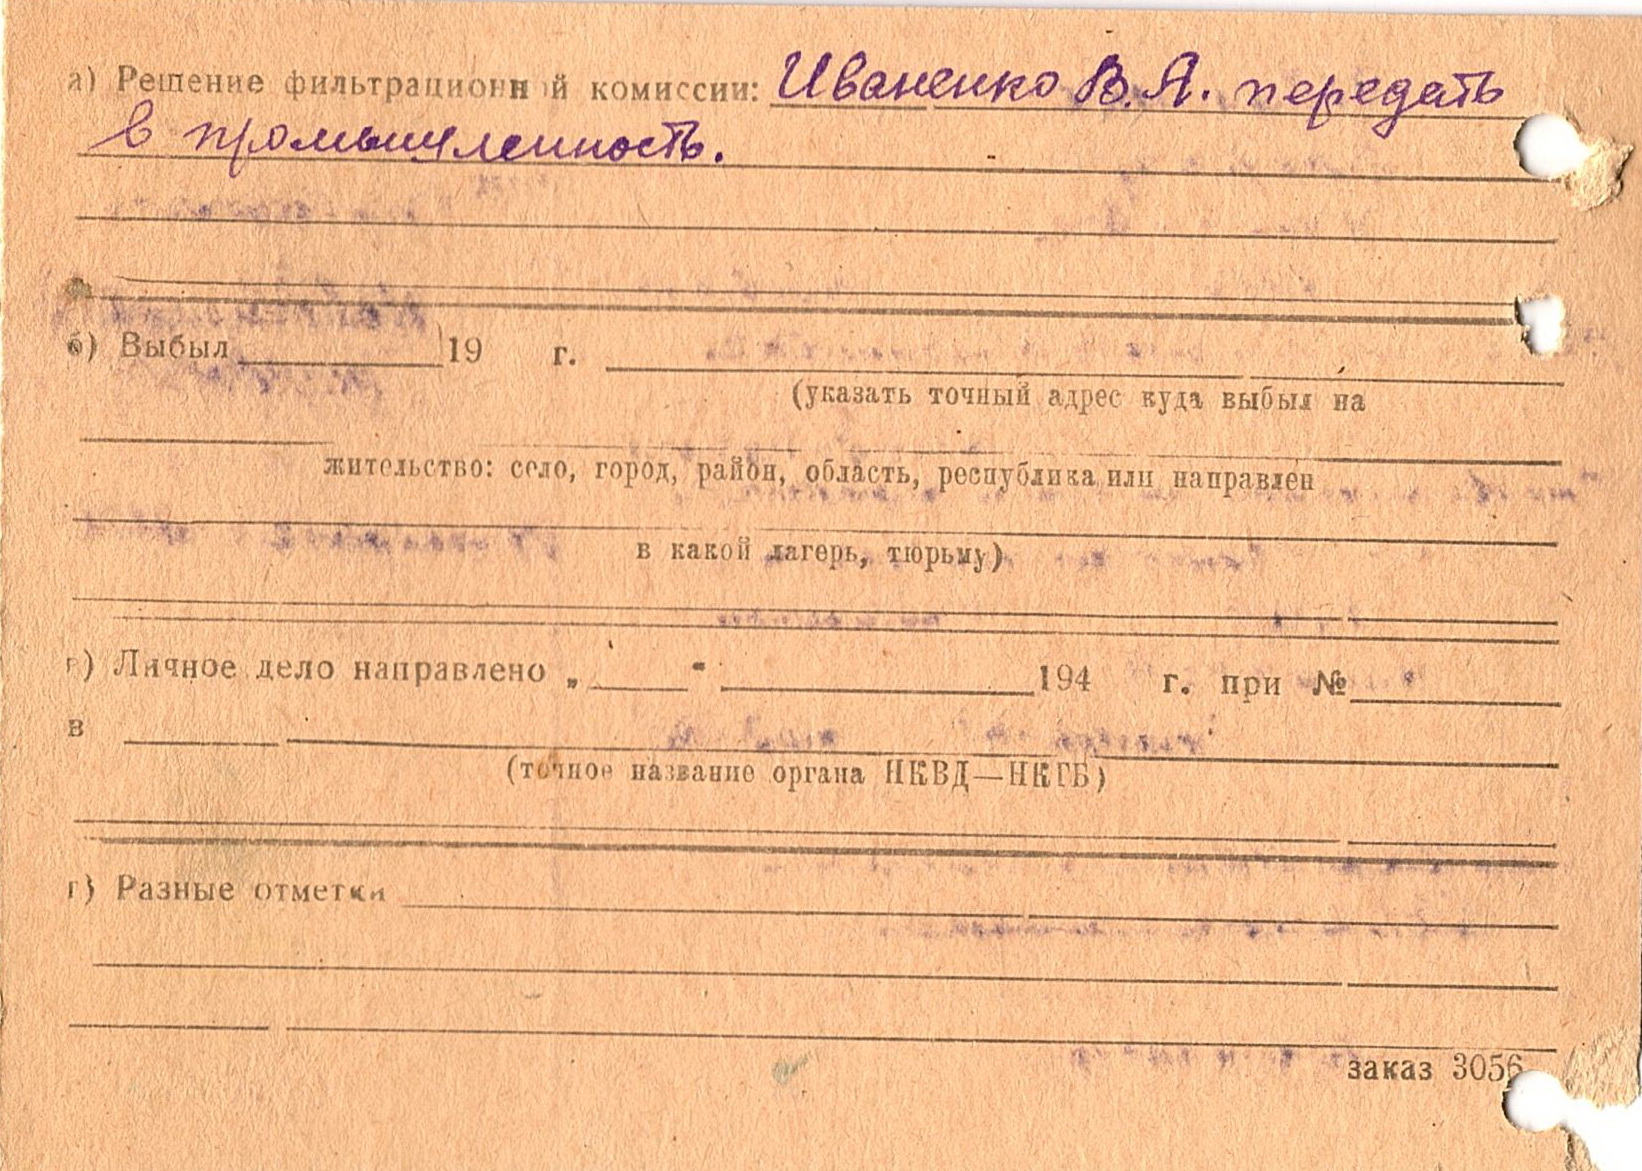 а) Решение фильтрационной комиссии: Иваненко В.Я. передать
в промышленность.
б) Выбыл 19 г.
(указать точный адрес куда выбыл на
жительство: село, город, район, область, республика или направлен
в какой лагерь, тюрьму)
в) Личное дело направлено „ “ 194 г. при №
в
(точное название органа НКВД—НКГБ)
г) Разные отметки
заказ 3056